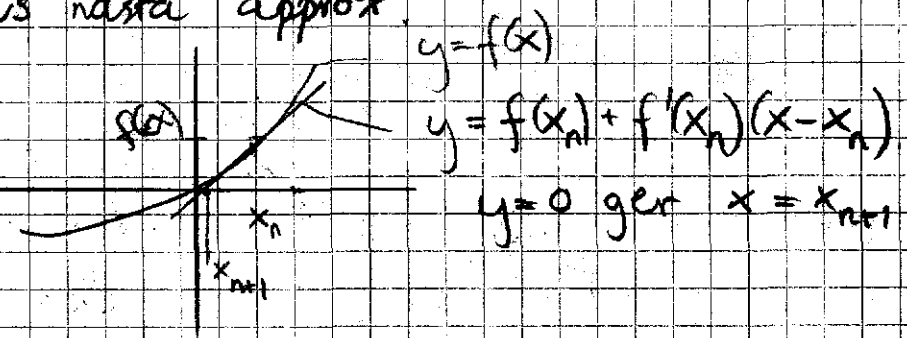 s nästa approx.
y=f(x)
f(x)
y = f(x_n) + f'(x_n)(x-x_n)
x_n
y=0 ger x = x_{n+1}
x_{n+1}